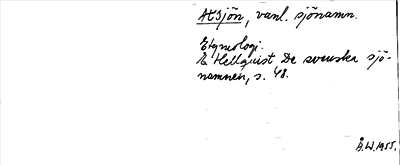 Altsjön, vanl. sjönamn.
Etymologi.
E Hellquist De svenska sjö-
namnen, s. 48.
Å.W.1955.